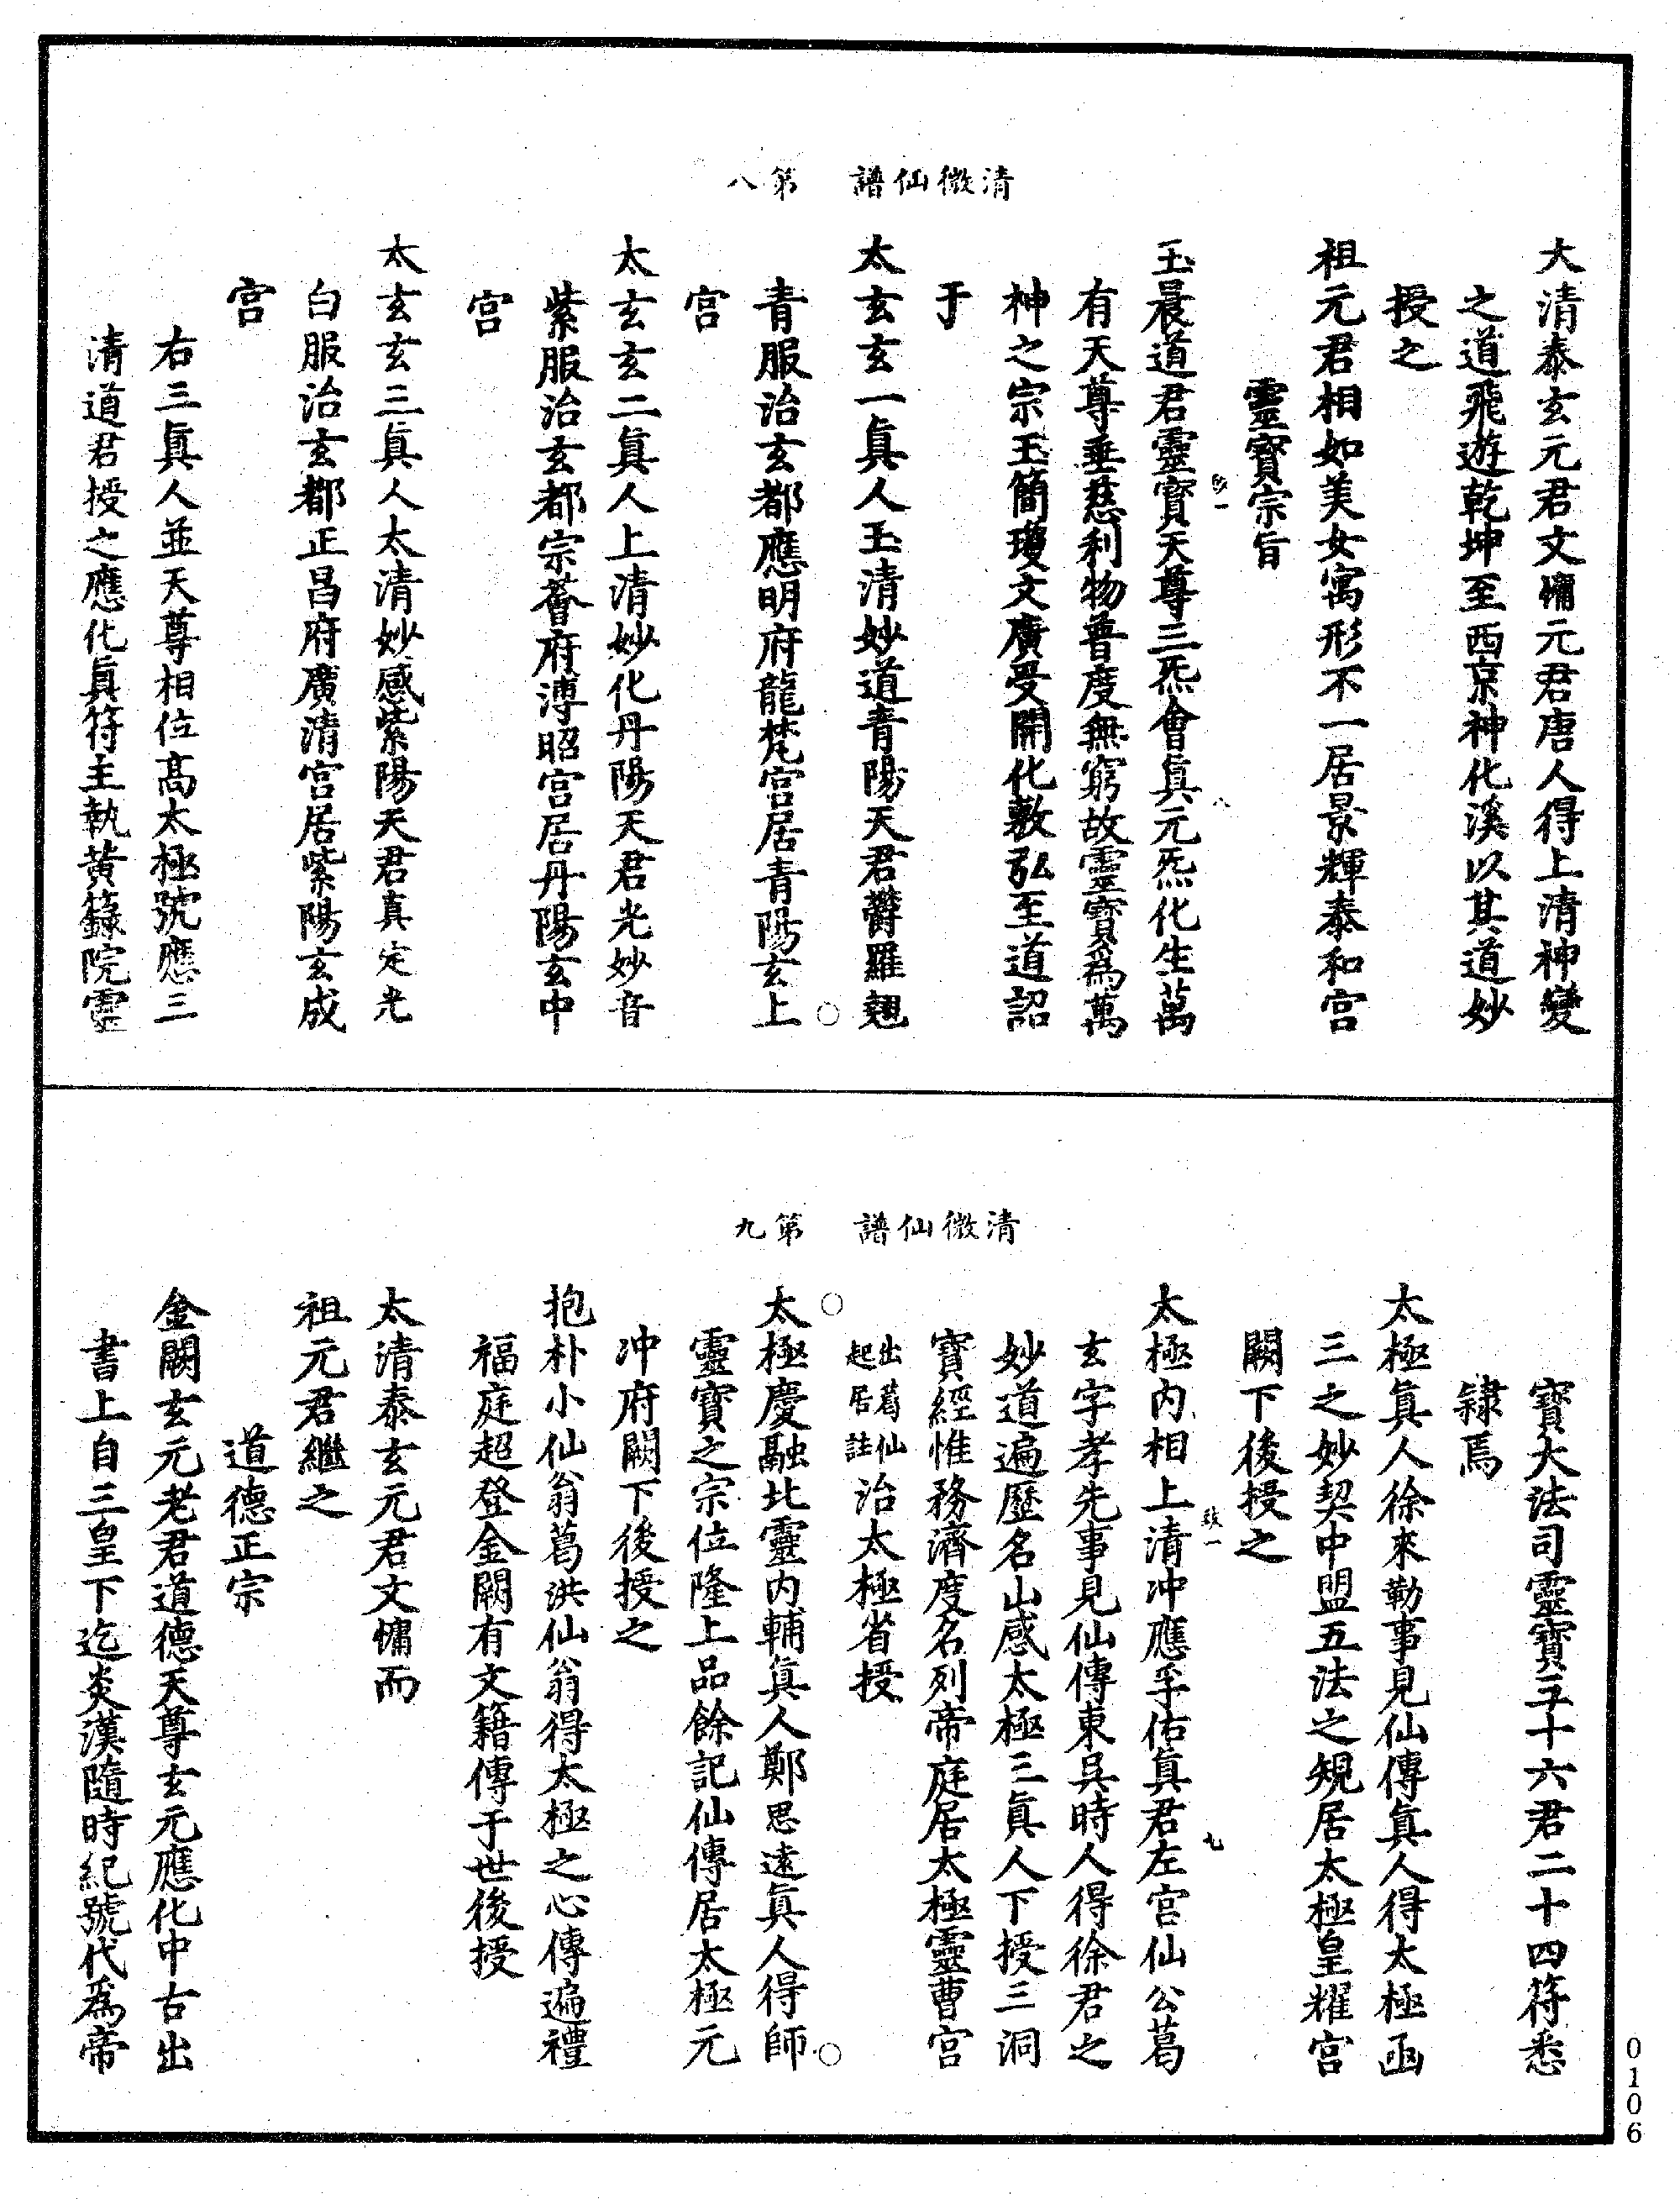 清微仙譜　第八
大清泰玄元君文慵元君唐人得上清神變
之道飛遊乾坤至西京神化溪以其道妙
授之
祖元君相如美女寓形不一居景輝泰和宮
靈寶宗旨
玉晨道君靈寶天尊三炁會真元炁化生萬
有天尊垂慈利物普度無窮故靈寶為萬
神之宗玉簡瓊文廣受開化敷弘至道詔
于
太玄玄一真人玉清妙道青陽天君欝羅翹
青服治玄都應明府龍梵宮居青陽玄上
宮
太玄玄二真人上清妙化丹陽天君光妙音
紫服治玄都宗薈府溥昭宮居丹陽玄中
宮
太玄玄三真人太清妙感紫陽天君真定光
白服治玄都正昌府廣清宮居紫陽玄成
宮
右三真人並天尊相位高太極號應三
清道君授之應化真符主執黃籙院靈
清微仙譜　第九
寶大法司靈寶三十六君二十四符悉
隸焉
太極真人徐來勒事見仙傳真人得太極函
三之妙契中盟五法之規居太極皇耀宮
闕下後授之
太極內相上清冲應孚佑真君左宮仙公葛
玄字孝先事見仙傳東吳時人得徐君之
妙道遍歷名山感太極三真人下授三洞
寶經惟務濟度名列帝庭居太極靈曹宮
出葛仙起居註治太極省授
太極慶融北靈內輔真人鄭思遠真人得師
靈寶之宗位隆上品餘記仙傳居太極元
冲府闕下後授之
抱朴小仙翁葛洪仙翁得太極之心傳遍禮
福庭超登金闕有文籍傳于世後授
太清泰玄元君文慵而
祖元君繼之
道德正宗
金闕玄元老君道德天尊玄元應化中古出
書上自三皇下迄炎漢隨時紀號代為帝
0106